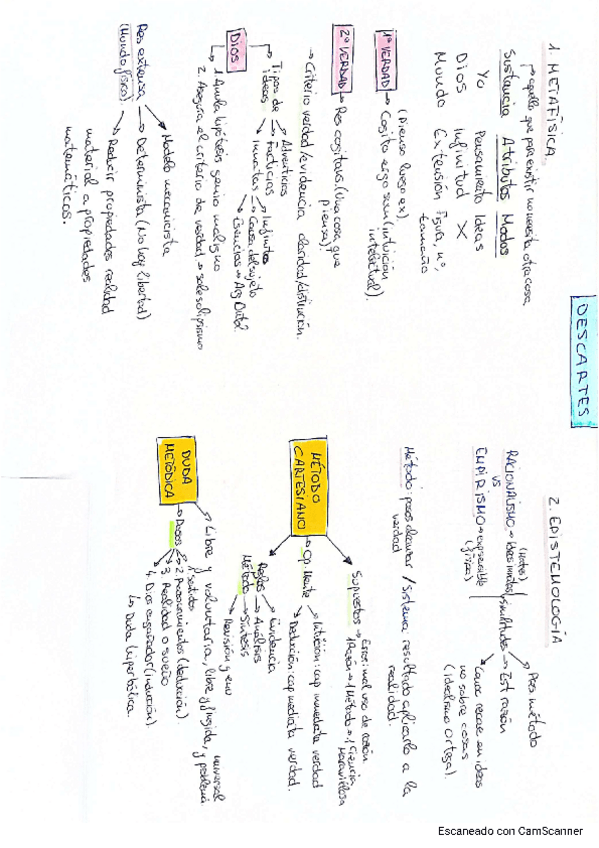 DESCARTES
1. METAFÍSICA
aquello que para existir no necesita otra cosa.
Sustancia Atributos Modos
Yo Pensamiento Ideas
Dios Infinitud X
Mundo Extensión Figura, nº,
tamaño
(Pienso luego ex)
1ª VERDAD → Cogito ergo sum (intuición
intelectual).
2ª VERDAD → Res cogitans. (Una cosa que
piensa).
→ Criterio verdad/evidencia claridad/distinción.
DIOS
Tipos de
ideas
Adventicias
Facticias
Innatas
Infinitas
Causa del sujeto
Esencias → Arg Ontol.
1. Anula hipótesis genio maligno
2. Asegura el criterio de verdad → sale solipsismo
Res extensa
(Mundo físico).
Modelo mecanicista
Determinista (No hay libertad)
Reducir propiedades realidad
material a propiedades
matemáticas.
2. EPISTEMOLOGÍA
(Mates)
RACIONALISMO → Ideas innatas
vs
EMPIRISMO → exp sensible
(física)
similitudes
Pres método
Est razón
Conoc recae en ideas
no sobre cosas
(idealismo Ortega).
Método: pasos descubrir / Sistema: resultado aplicarlo a la
verdad realidad.
MÉTODO
CARTESIANO
Supuestos → Error: mal uso de razón
1 Razón → 1 Método → 1
Ciencia
Maravillosa
Op. Mente
Intuición: cap inmediata verdad
Deducción: cap mediata verdad.
Reglas
Método
Evidencia
Análisis
Síntesis
Revisión y enu
DUDA
METÓDICA
universal
Libre y voluntaria, libre y fingida, y
Pasos
1. sentidos
2. Razonamientos (deducción)
3. Realidad o sueño
4. Dios engañador (intuición).
↳ Duda hiperbólica.
Escaneado con CamScanner